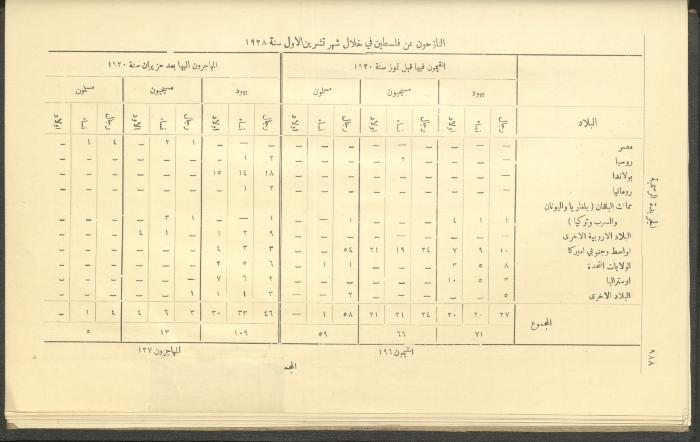 النازحون عن فلسطين في خلال شهر تشرين الاول سنة ١٩٢٨
المقيمون فيها قبل تموز سنة ١٩٢٠ المهاجرون اليها بعد حزيران سنة ١٩٢٠
البلاد يهود مسيحيون مسلمون يهود مسيحيون مسلمون
رجال نساء اولاد رجال نساء اولاد رجال نساء اولاد رجال نساء اولاد رجال نساء اولاد رجال نساء اولاد
مصر — — — — — — — — — — — — ١ ٢ — ٤ ١ —
روسيا — — — — ٢ — — — — ٢ ١ — — — — — — —
بولاندا — — — — — — — — — ١٨ ١٤ ١٥ — — — — — —
رومانيا — — — — — — — — — ٢ ١ — — — — — — —
ممالك البلقان ( بلغاريا واليونان
والسرب وتركيا ) ١ ١ ٤ — — — ١ — — ١ — — ١ ٣ — — — —
البلاد الاروبية الاخرى — — — — — — — — — ٩ ٢ ١ — ١ ٤ — — —
اواسط وجنوبي اميركا ١٠ ٩ ٧ ٢٤ ١٩ ٢١ ٥٤ — — ٣ ٣ ٤ — — — — — —
الولايات المتحدة ٨ ٥ ٣ — — — ١ ١ — ٦ ٥ ٢ — — — — — —
اوستراليا ٣ ٥ ١٠ — — — — — — ٢ ٦ ٧ — — — — — —
البلاد الاخرى ٥ — — — — — ٢ — — ٣ ١ ١ ١ — — — — —
المجموع ٢٧ ٢٠ ٢٠ ٢٤ ٢١ ٢١ ٥٨ ١ — ٤٦ ٣٣ ٣٠ ٣ ٦ ٤ ٤ ١ —
٧١ ٦٦ ٥٩ ١٠٩ ١٣ ٥
المقيمون ١٩٦ المهاجرون ١٢٧
الجريدة الرسمية
٩٨٨